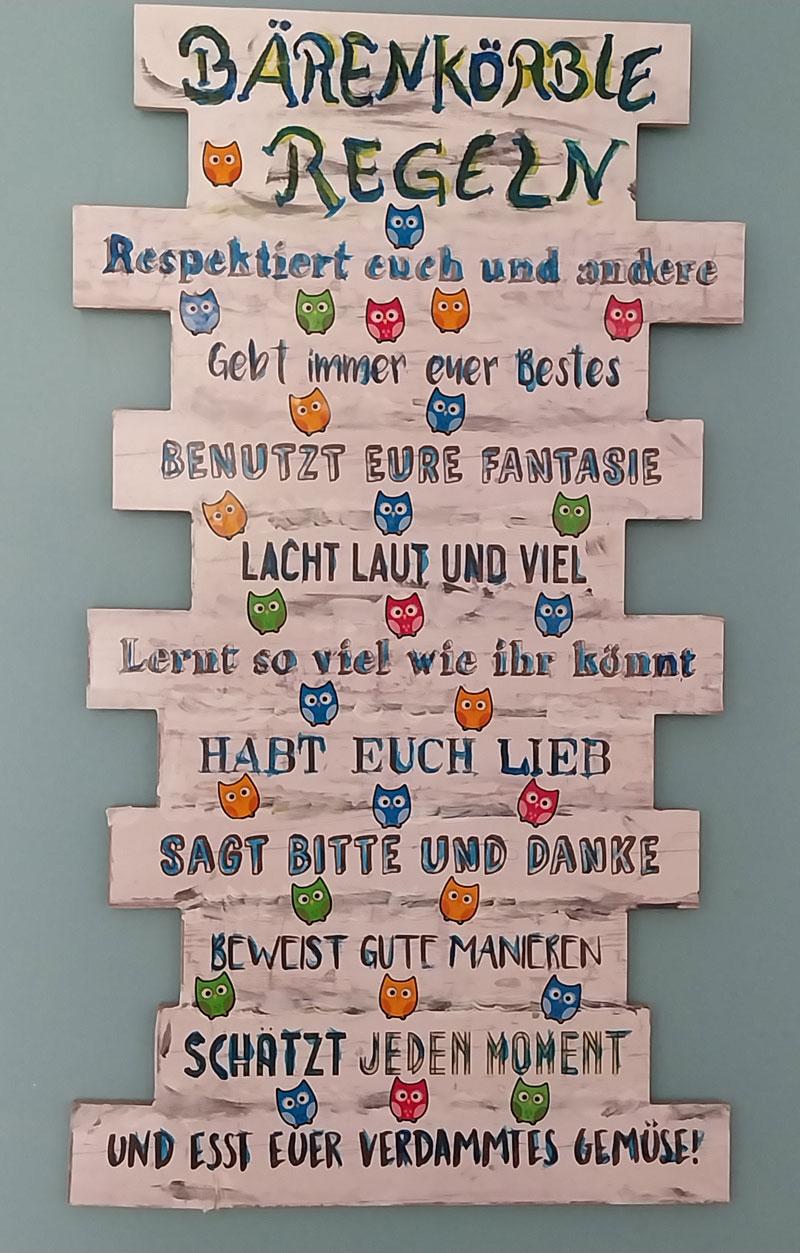 BÄRENKÖRBLE
REGELN
Respektiert euch und andere
Gebt immer euer Bestes
BENUTZT EURE FANTASIE
LACHT LAUT UND VIEL
Lernt so viel wie ihr könnt
HABT EUCH LIEB
SAGT BITTE UND DANKE
BEWEIST GUTE MANIEREN
SCHÄTZT JEDEN MOMENT
UND ESST EUER VERDAMMTES GEMÜSE!